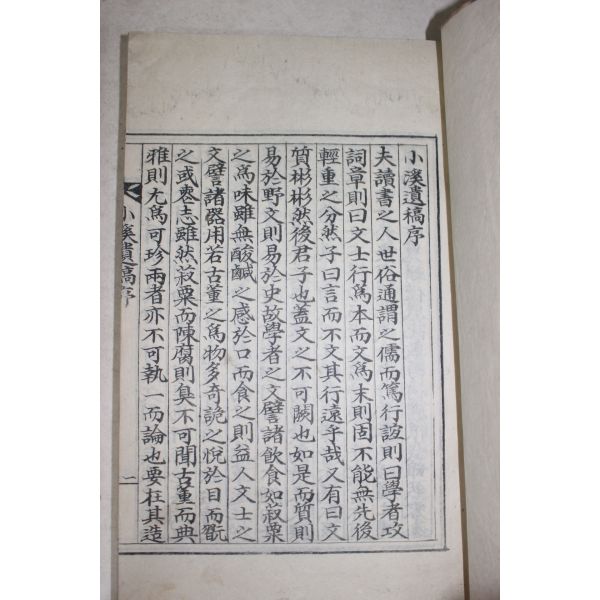 小溪遺稿序
夫讀書之人世俗通謂之儒而篤行誼則曰學者攻
詞章則曰文士行爲本而文爲末則固不能無先後
輕重之分然子曰言而不文其行遠乎哉又有曰文
質彬彬然後君子也盖文之不可闕也如是而質則
易於野文則易於史故學者之文譬諸飮食如菽粟
之爲味雖無酸鹹之感於口而食之則益人文士之
文譬諸器用若古董之爲物多奇詭之悅於目而翫
之或喪志雖然菽粟而陳腐則臭不可聞古董而典
雅則尤爲可珍兩者亦不可執一而論也要在其造
小溪遺稿序
一